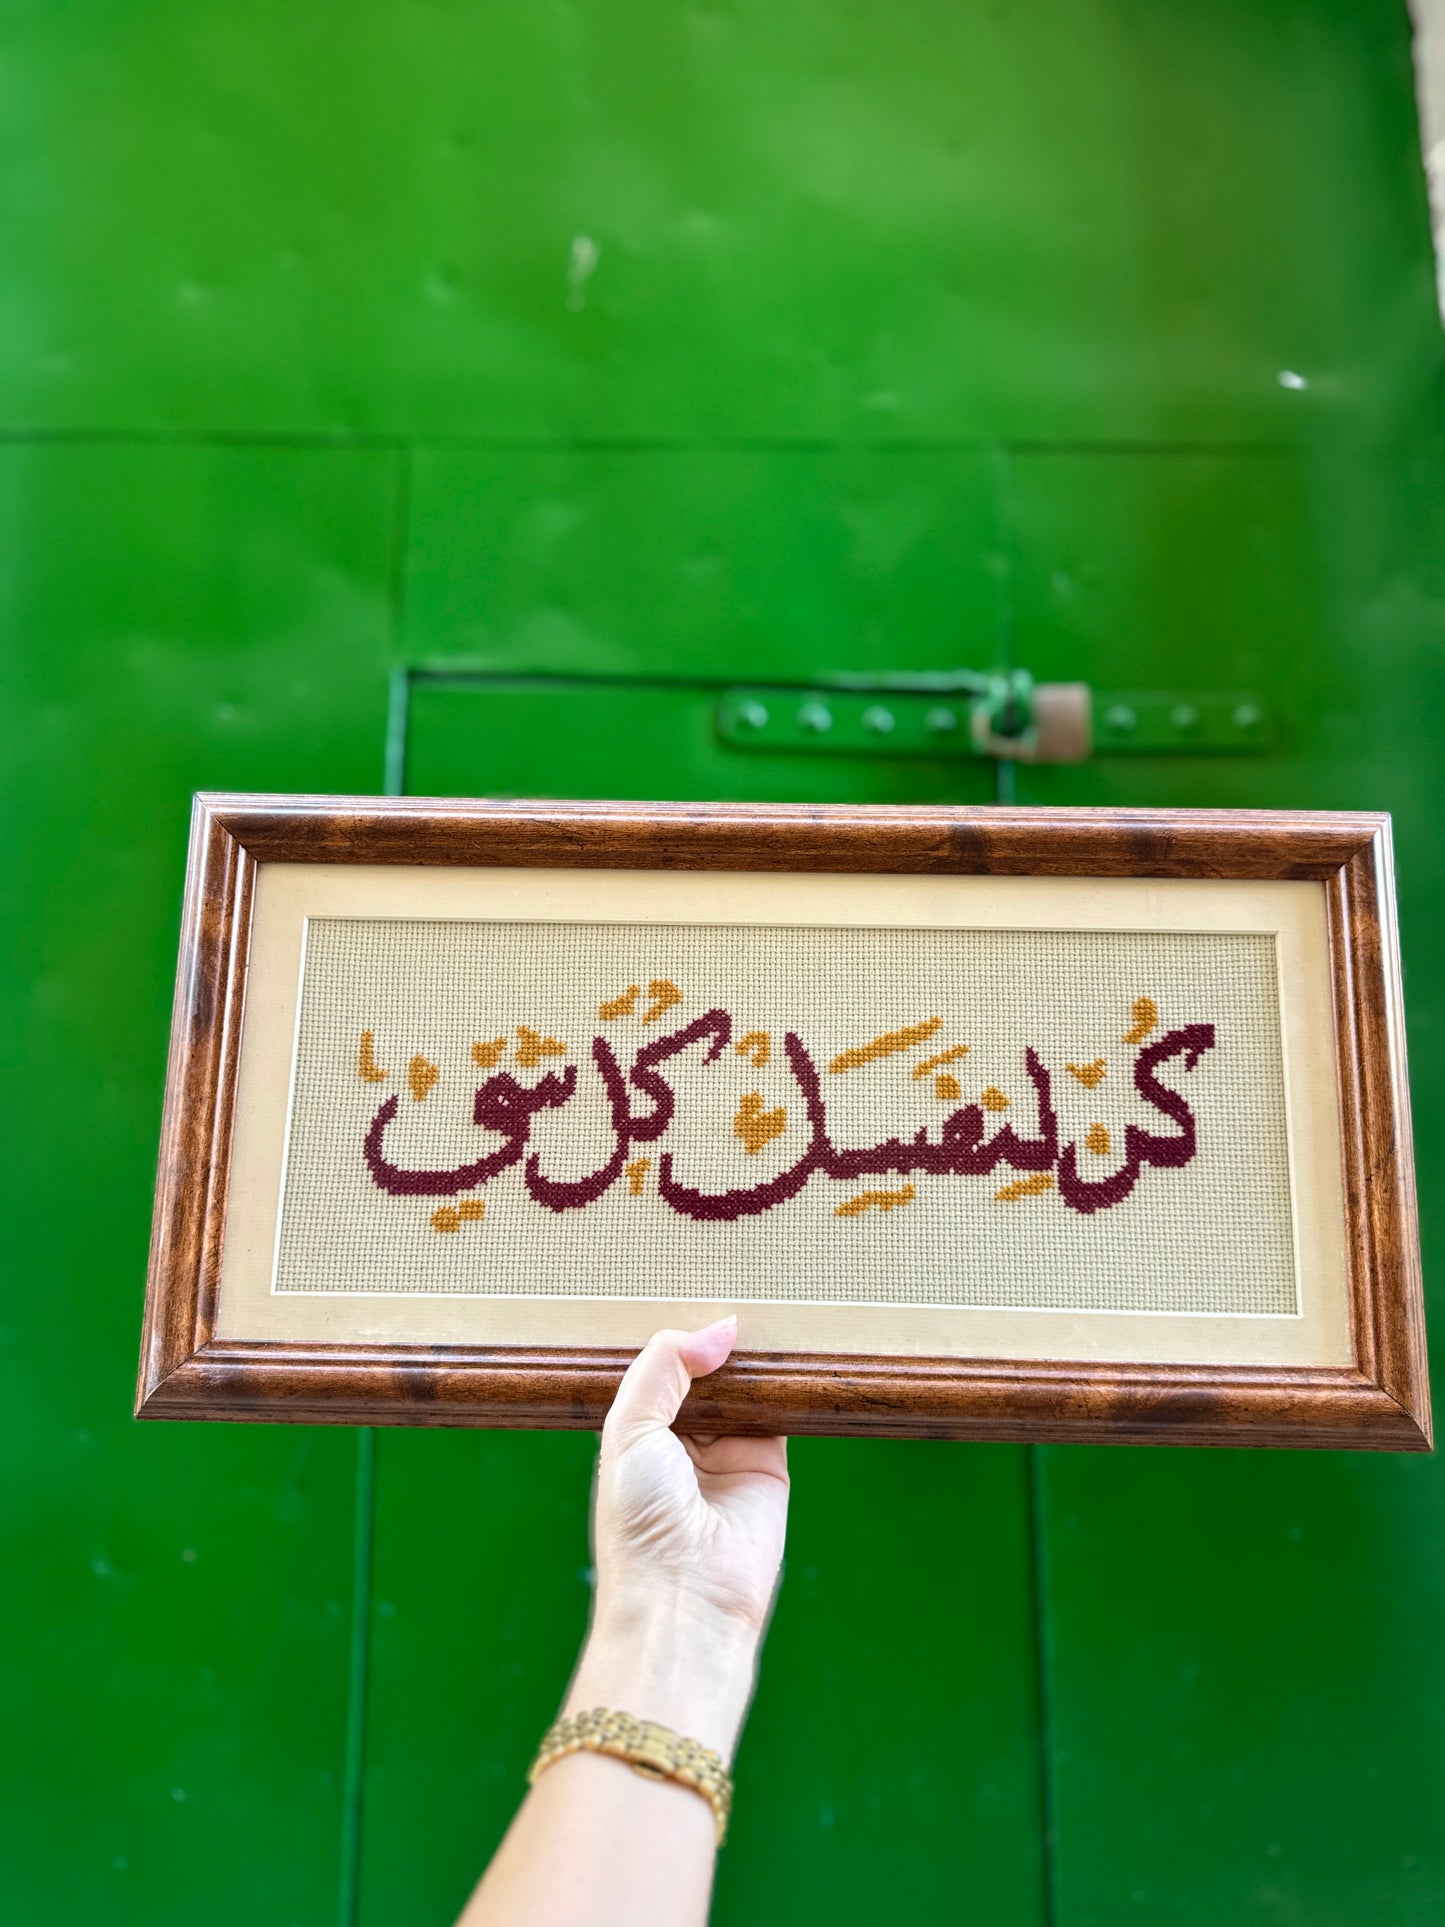 كن لنفسك كل شيء